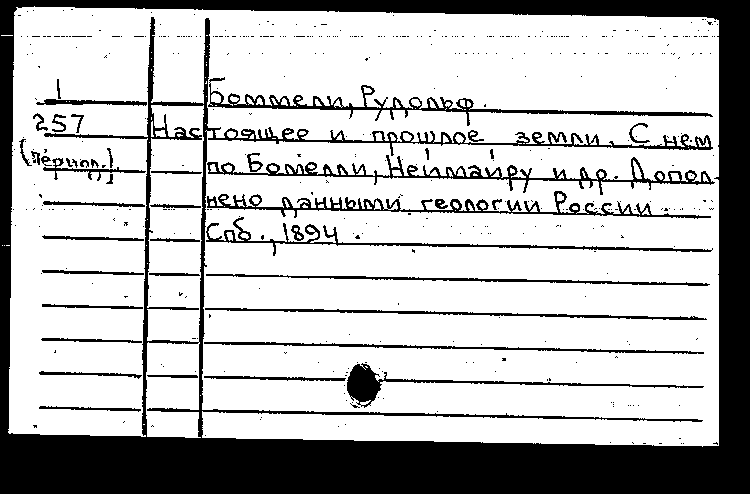 1 Боммели, Рудольф.
257 Настоящее и прошлое земли. С нем.
(период.) по Бомелли, Неймайру и др. Допол-
нено данными геологии России.
Спб., 1894.